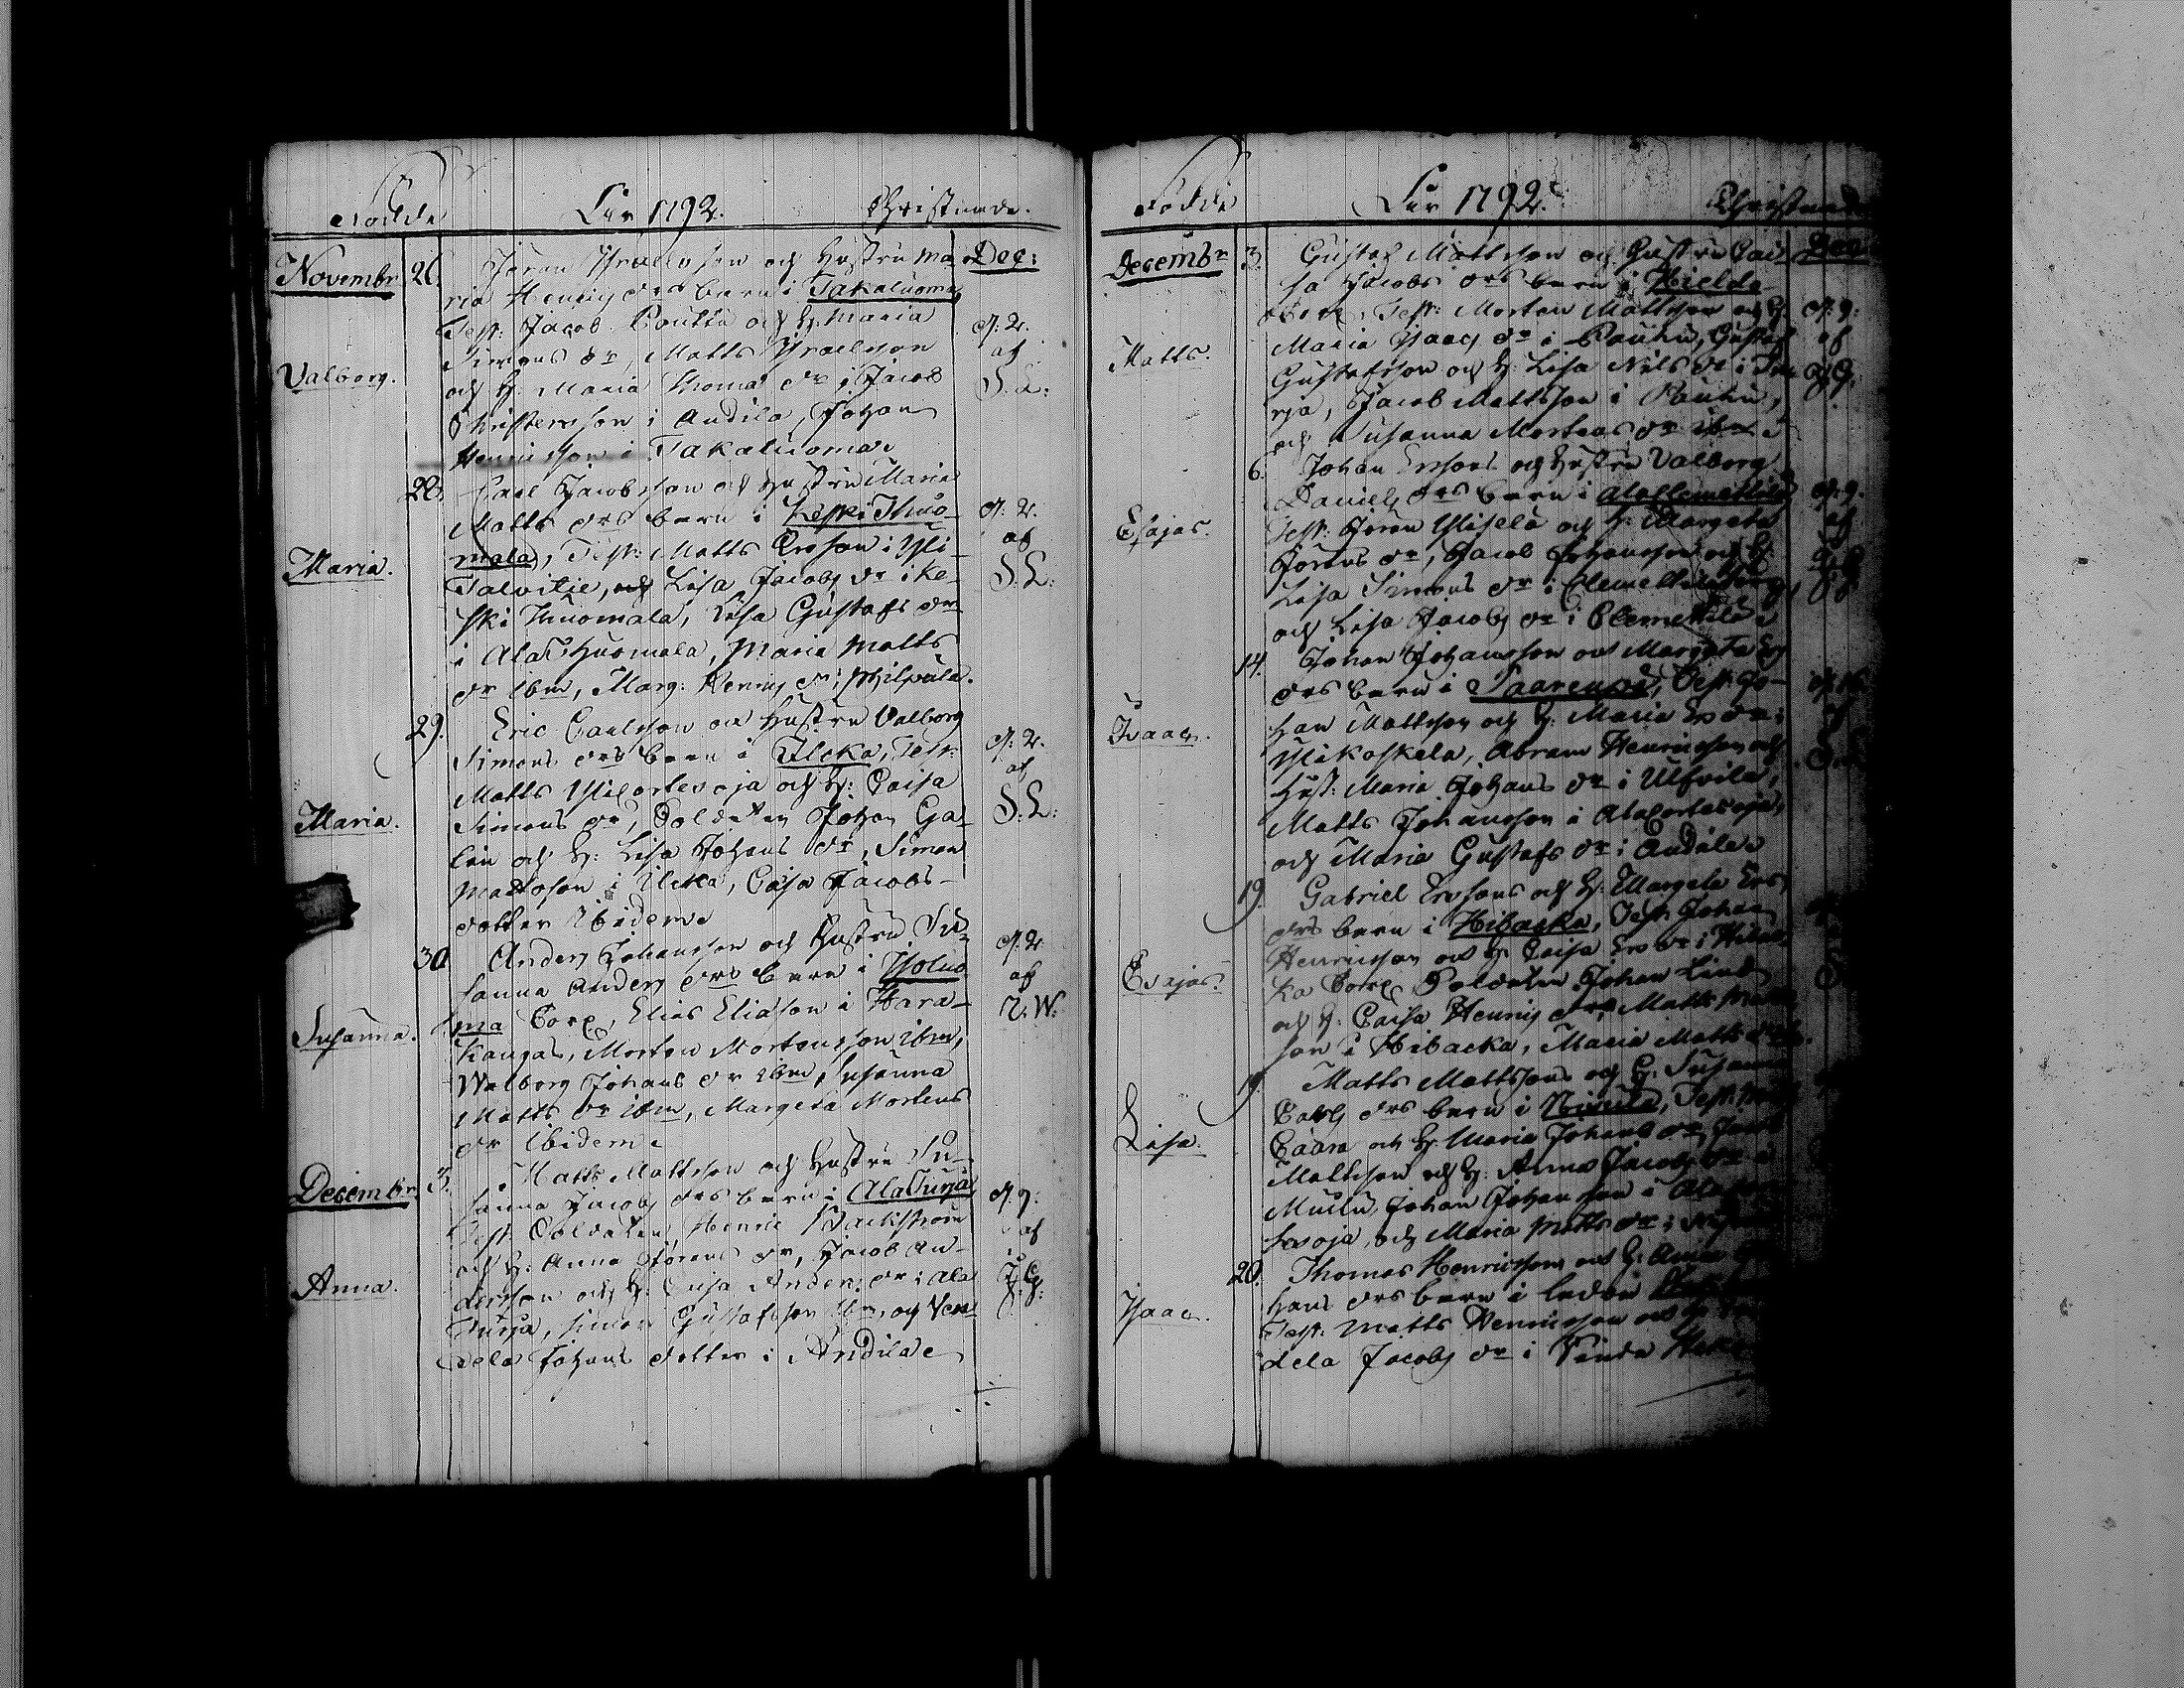 Födde Åhr 1792. Christnade.
Novembr 26. Jöran Ysraelsson och Hustru Ma- Dec:
ria Henrics drs barn i Takaluoma,
Test: Jacob Poutta och H: Maria d. 2.
Simons dr, Matts Ysraelsson af
Valborg. och H. Maria Thomæ dr i Jacob S. L:
Christersson i Andila, Johan
Henricsson i Takaluoma
28. Carl Jacobsson och Hustru Maria
Matts drs barn i Keski Thuo- d. 2.
mala, Test: Matts Ersson i Yli- af
Maria. Talvitie, och Lisa Jacobs dr i Ke- S. L:
ski Thuomala, Lisa Gustafs dr
i Ala Thuomala, Maria Matts
dr ibm, Marg: Henrics dr i Philpula.
29. Eric Carlsson och Hustru Valborg
Simons drs barn i Ilcka, Test: d: 2.
Matts Yliortesoja och H: Caisa af
Maria. Simons dr, Soldaten Johan Ga- S: L:
lin och H: Lisa Johans dr, Simon
Mattsson i Ilcka, Caisa Jacobs-
dotter Ibidem
30 Anders Johansson och Hustru Su- d. 2
sanna Anders drs barn i Yoluo af
Susanna. ma Torp, Elias Eliasson i Hara- V. W.
kangas, Morten Mortensson ibm,
Walborg Johans dr ibm, Susanna
Matts dr ibm, Margeta Mortens
dr Ibidem
Decembr 3. Matts Mattsson och Hustru Su-
sanna Jacobs drs barn i AlaTurja d. 9:
Test: Soldaten Henric Backström af
och H: Anna Jörans dr, Jacob An-
Anna. dersson och H: Caisa Anders dr i Ala J. G:
Turja, Simon Gustafsson ibm, och Ven-
dela Johans dotter i Andila
Födde Åhr 1792. Christnade
Decembr 3. Gustaf Mattsson och Hustru Cai- Dec:
sa Jacobs drs barn i Hielde-
Test: Morten Mattsson och H: d: 9:
Matts. Maria Isaacs dr i Rauhu, Gustaf af
Gustafsson och H: Lisa Nils dr i Tu- J. G.
rja, Jacob Mattsson i Rauhu,
och Susanna Mortens dr ibm
6. Johan Ersson och Hustru Valborg
Daniels drs barn i Alaclemettila d. 9.
Esajas. Test: Jöran Ylisela och H: Margeta af
Jörans dr, Jacob Johansson och H:
Lisa Simons dr i Clemettila
och Lisa Jacobs dr i Clemettila
14. Johan Johansson och Margeta Ers
drs barn i Paarenpä, Test. Jo- d. 16
Isaac. han Mattsson och H: Maria Ers dr i af
Ylikoskela, Abram Henricsson och
Hust: Maria Johans dr i Ulfvila,
Matts Johansson i Alaortesoja,
och Maria Gustafs dr i Andila
19. Gabriel Ersson och H: Margeta Ers
drs barn i Hibacka, Test: Johan
Henricsson och H: Caisa Ers dr i
Esajas. ka Torp, Soldaten Johan Lind
och H: Caisa Henrics dr, Matts Matts
son i Hibacka, Maria Matts dr ib.
19. Matts Mattsson och H: Susanna
Carls drs barn i Niviula, Test:
Lisa. Caara och H: Maria Johans dr, Jacob
Mattsson och H: Anna Jacobs dr i
Muilu, Johan Johansson i Alaor-
tesoja, och Maria Matts dr i
20. Thomas Henricsson och H: Anna
hans drs barn i
Isaac. Test: Matts Henricsson och H:
dela Jacobs dr i